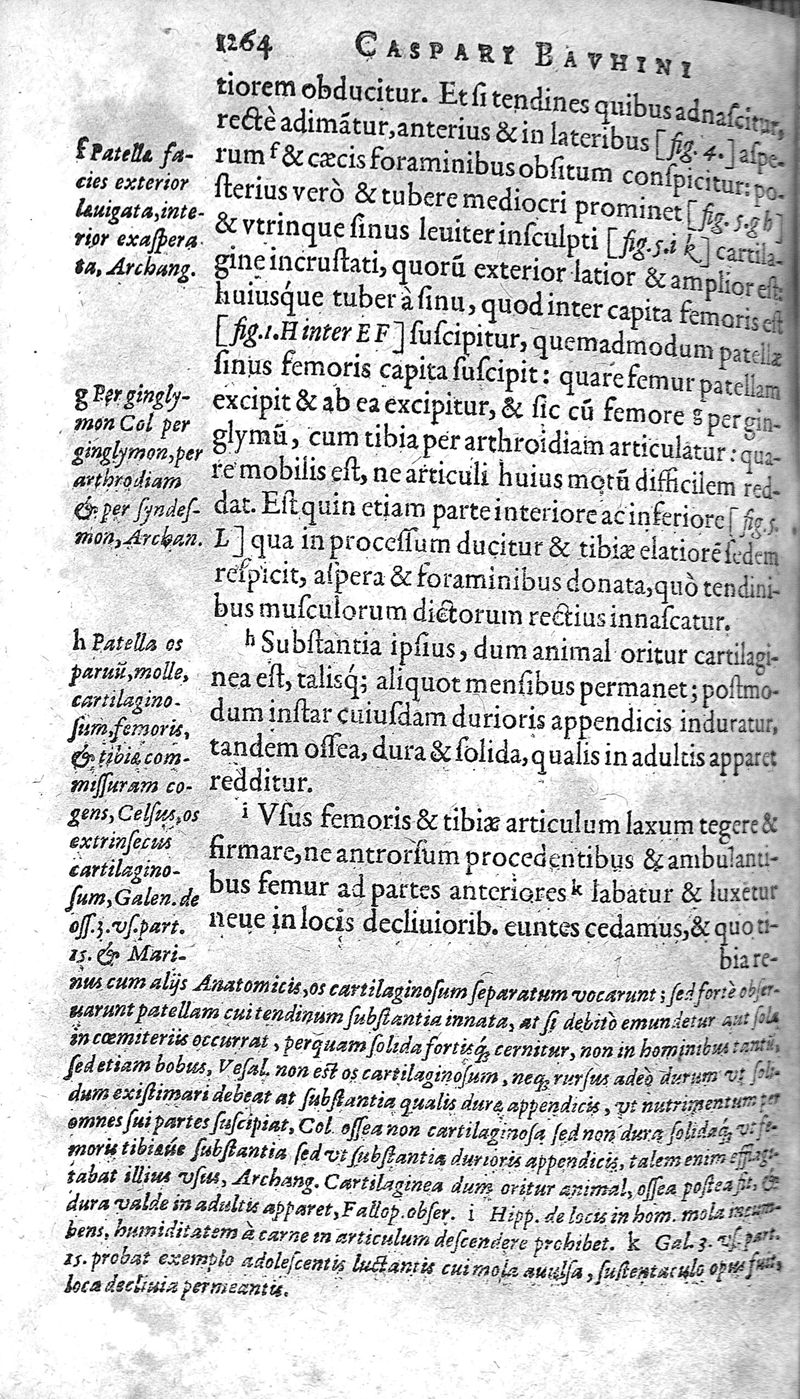 1264 CASPARI BAVHINI
tiorem obducitur. Et ſi tendines quibus adnaſcitur,
rectè adimãtur, anterius & in lateribus [fig. 4.] aſpe-
rum f & cæcis foraminibus obſitum conſpicitur: po-
ſterius verò & tubere mediocri prominet [fig. 5. g h]
& vtrinque ſinus leuiter inſculpti [fig. 5. i k] cartila-
gine incruſtati, quorũ exterior latior & amplior eſt:
huiusque tuber à ſinu, quod inter capita femoris eſt
[fig. 1. H inter E F] ſuſcipitur, quemadmodum patellæ
ſinus femoris capita ſuſcipit: quare femur patellam
excipit & ab ea excipitur, & ſic cũ femore g per gin-
glymũ, cum tibia per arthroidiam articulatur: qua-
re mobilis eſt, ne articuli huius motũ difficilem red-
dat. Eſt quin etiam parte interiore ac inferiore [fig. 5.
L] qua in proceſſum ducitur & tibiæ elatiorẽ ſedem
reſpicit, aſpera & foraminibus donata, quò tendini-
bus muſculorum dictorum rectius innaſcatur.
h Subſtantia ipſius, dum animal oritur cartilagi-
nea eſt, talisq; aliquot menſibus permanet; poſtmo-
dum inſtar cuiuſdam durioris appendicis induratur,
tandem oſſea, dura & ſolida, qualis in adultis apparet
redditur.
i Vſus femoris & tibiæ articulum laxum tegere &
firmare, ne antrorſum procedentibus & ambulanti-
bus femur ad partes anteriores k labatur & luxetur
neue in locis decliuiorib. euntes cedamus, & quo ti-
bia re-
f Patella fa-
cies exterior
læuigata, inte-
rior exaſpera
ta, Archang.
g Per ginglý-
mon Col per
ginglymon, per
arthrodiam
& per ſyndeſ-
mon, Archan.
h Patella os
paruũ, molle,
cartilagino-
ſum, femoris,
& tibiæ com-
miſſuram co-
gens, Celſus, os
extrinſecus
cartilagino-
ſum, Galen. de
oſſ. 3. vſ. part.
15. & Mari-
nus cum alijs Anatomicis, os cartilaginoſum ſeparatum vocarunt; ſed fortè obſer-
uarunt patellam cui tendinum ſubſtantia innata, at ſi debitò emundetur aut ſola
in cœmiteriis occurrat, perquam ſolida fortisq; cernitur, non in hominibus tantũ,
ſed etiam bobus, Veſal. non eſt os cartilaginoſum, neq; rurſus adeò durum vt ſoli-
dum exiſtimari debeat at ſubſtantia qualis duræ appendicis, vt nutrimentum per
omnes ſui partes ſuſcipiat, Col. oſſea non cartilaginoſa ſed non dura ſolidaq; vt fe-
moris tibiæue ſubſtantia ſed vt ſubſtantia durioris appendicis, talem enim efflagi-
tabat illius vſus, Archang. Cartilaginea dum oritur animal, oſſea poſtea fit, &
dura valde in adultis apparet, Fallop. obſer. i Hipp. de locis in hom. mola incum-
bens, humiditatem à carne in articulum deſcendere prohibet. k Gal. 3. vſ. part.
15. probat exemplo adoleſcentis luctantis cui mola auulſa, ſuſtentaculo opus fuit,
loca decliuia permeantis.